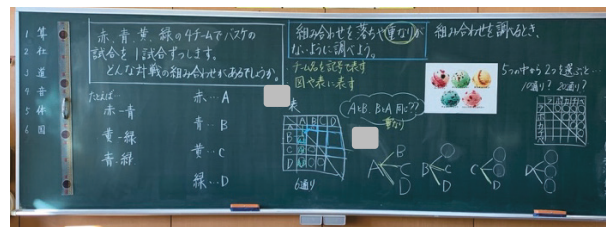 1 算
2 社
3 道
4 音
5 体
6 国
赤、青、黄、緑の4チームでバスケの
試合を1試合ずつします。
どんな対戦の組み合わせがあるでしょうか。
たとえば…
赤-青
黄-緑
青-緑
赤…A
青…B
黄…C
緑…D
組み合わせを落ちや重なりが
ないように調べよう。
・チーム名を記号で表す
図や表に表す
表
A B C D
A
B
C
D
6通り
AとB、BとA 同じ?
重なり
A B C D
B C D
C D
D
組み合わせを調べるとき、
5つの中から2つを選ぶと…
10通り? 20通り?